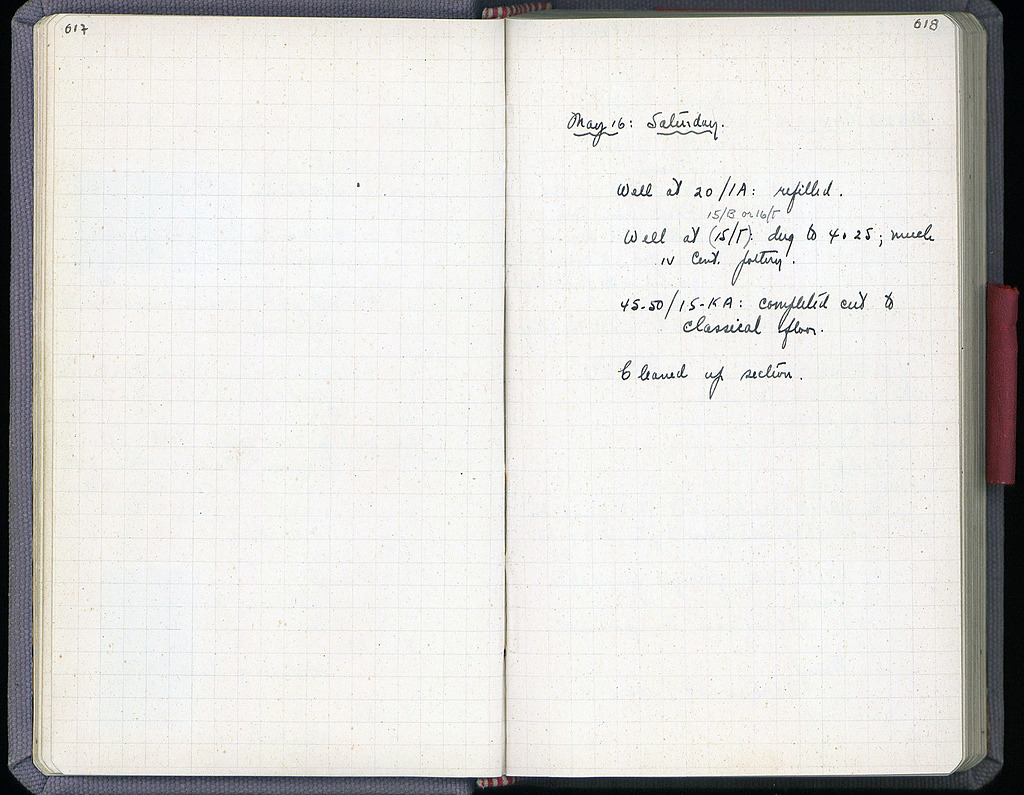 617
618
May 16: Saturday.
Well at 20/IA: refilled.
15/B or 16/Γ
Well at (15/Γ): dug to 4.25; much
IV Cent. pottery.
45-50/15-KA: completed cut to
classical floor.
Cleaned up section.